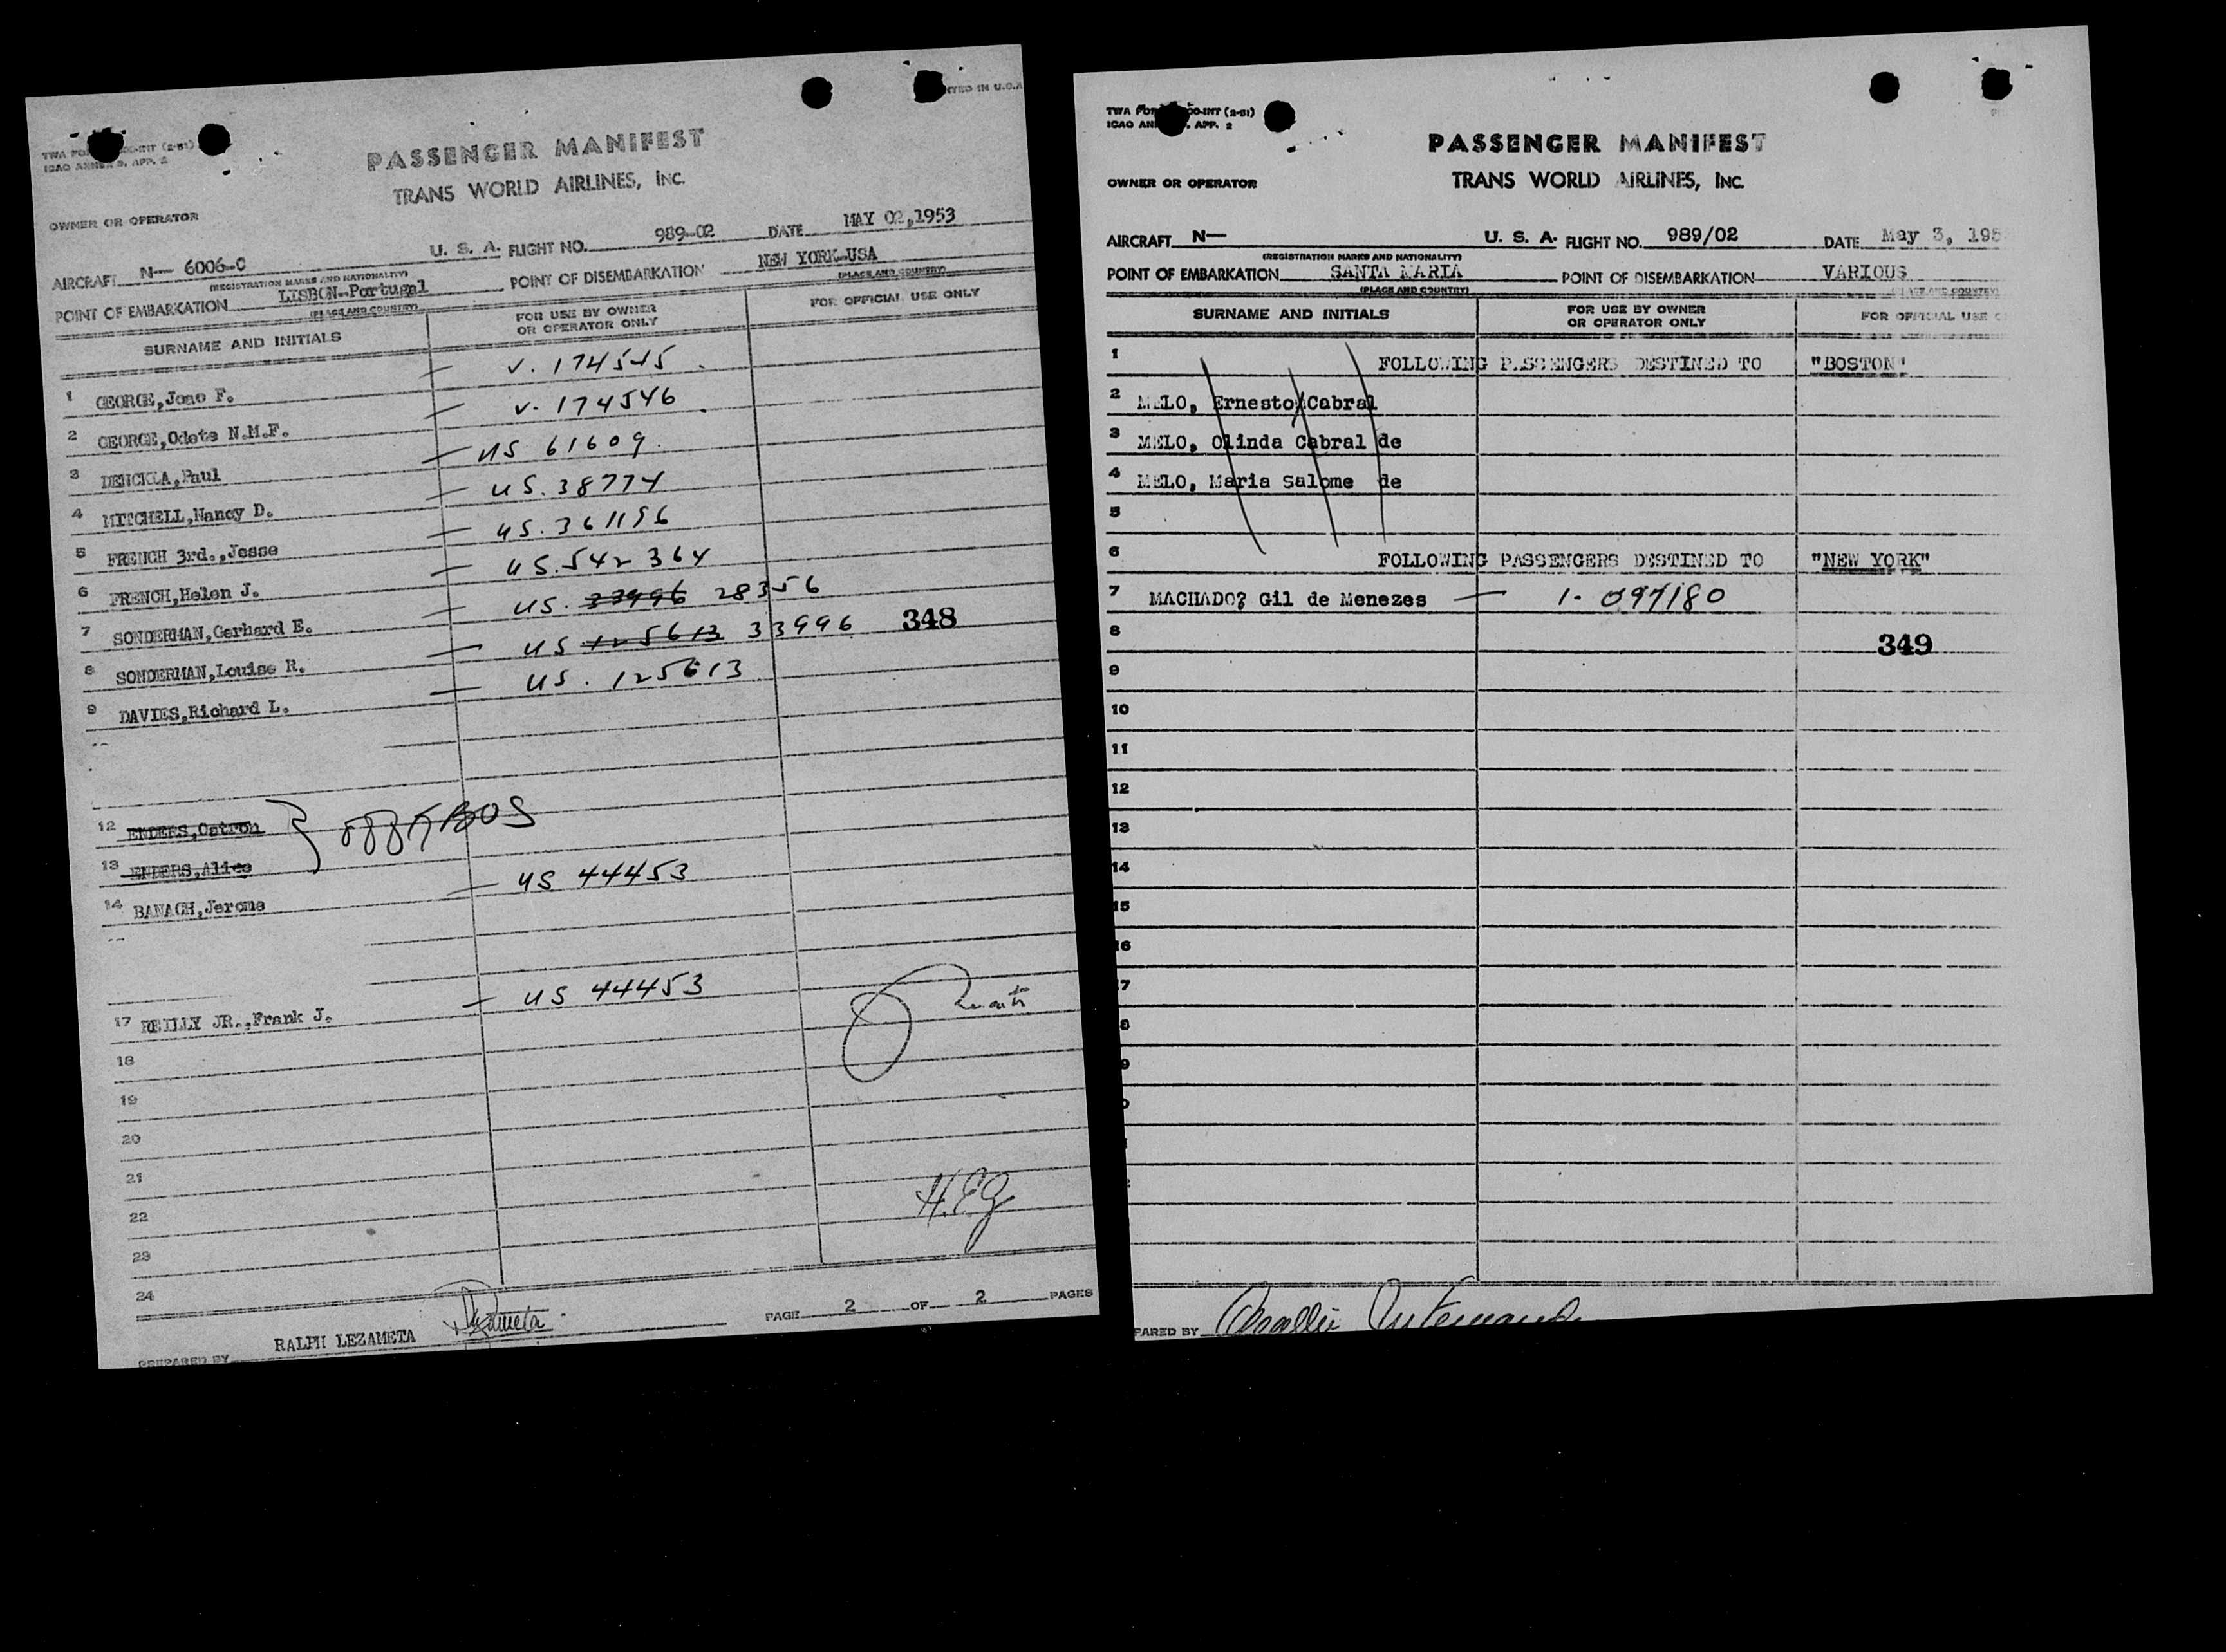 PRINTED IN U.S.A
ICAO ANNEX 9, APP. 2
PASSENGER MANIFEST
TRANS WORLD AIRLINES, INC.
OWNER OR OPERATOR
AIRCRAFT N-- 6006-C U. S. A. FLIGHT NO. 989-02 DATE MAY 02,1953
(REGISTRATION MARKS AND NATIONALITY)
POINT OF EMBARKATION LISBON-Portugal POINT OF DISEMBARKATION NEW YORK-USA
(PLACE AND COUNTRY) (PLACE AND COUNTRY)
SURNAME AND INITIALS FOR USE BY OWNER OR OPERATOR ONLY FOR OFFICIAL USE ONLY
1 GEORGE,Joao F. — V. 174545
2 GEORGE,Odete N.M.F. — V. 174546
3 DENCKLA,Paul — US 61609
4 MITCHELL,Nancy D. — US. 38774
5 FRENCH 3rd.,Jesse — US. 361196
6 FRENCH,Helen J. — US. 542 364
7 SONDERMAN,Gerhard E. — US. 33996 28356
8 SONDERMAN,Louise R. — US 125613 33996 348
9 DAVIES,Richard L. — US. 125613
12 ENDERS,Ostron
13 ENDERS,Alice
BOS
14 BANACH,Jerome — US 44453
17 REILLY JR.,Frank J. — US 44453
18
19
20
21
22
23
24
H.E.G
PREPARED BY RALPH LEZAMETA PAGE 2 OF 2 PAGES
TWA FORM INT (2-51)
ICAO ANNEX APP. 2
PASSENGER MANIFEST
TRANS WORLD AIRLINES, INC.
OWNER OR OPERATOR
AIRCRAFT N— U. S. A. FLIGHT NO. 989/02 DATE May 3, 195
(REGISTRATION MARKS AND NATIONALITY)
POINT OF EMBARKATION SANTA MARIA POINT OF DISEMBARKATION VARIOUS
(PLACE AND COUNTRY) (PLACE AND COUNTRY)
SURNAME AND INITIALS FOR USE BY OWNER OR OPERATOR ONLY FOR OFFICIAL USE O
1 FOLLOWING PASSENGERS DESTINED TO "BOSTON"
2 MELO, Ernesto Cabral
3 MELO, Olinda Cabral de
4 MELO, Maria Salome de
5
6 FOLLOWING PASSENGERS DESTINED TO "NEW YORK"
7 MACHADO? Gil de Menezes — 1- 097180
8 349
9
10
11
12
13
14
15
16
7
8
9
PARED BY